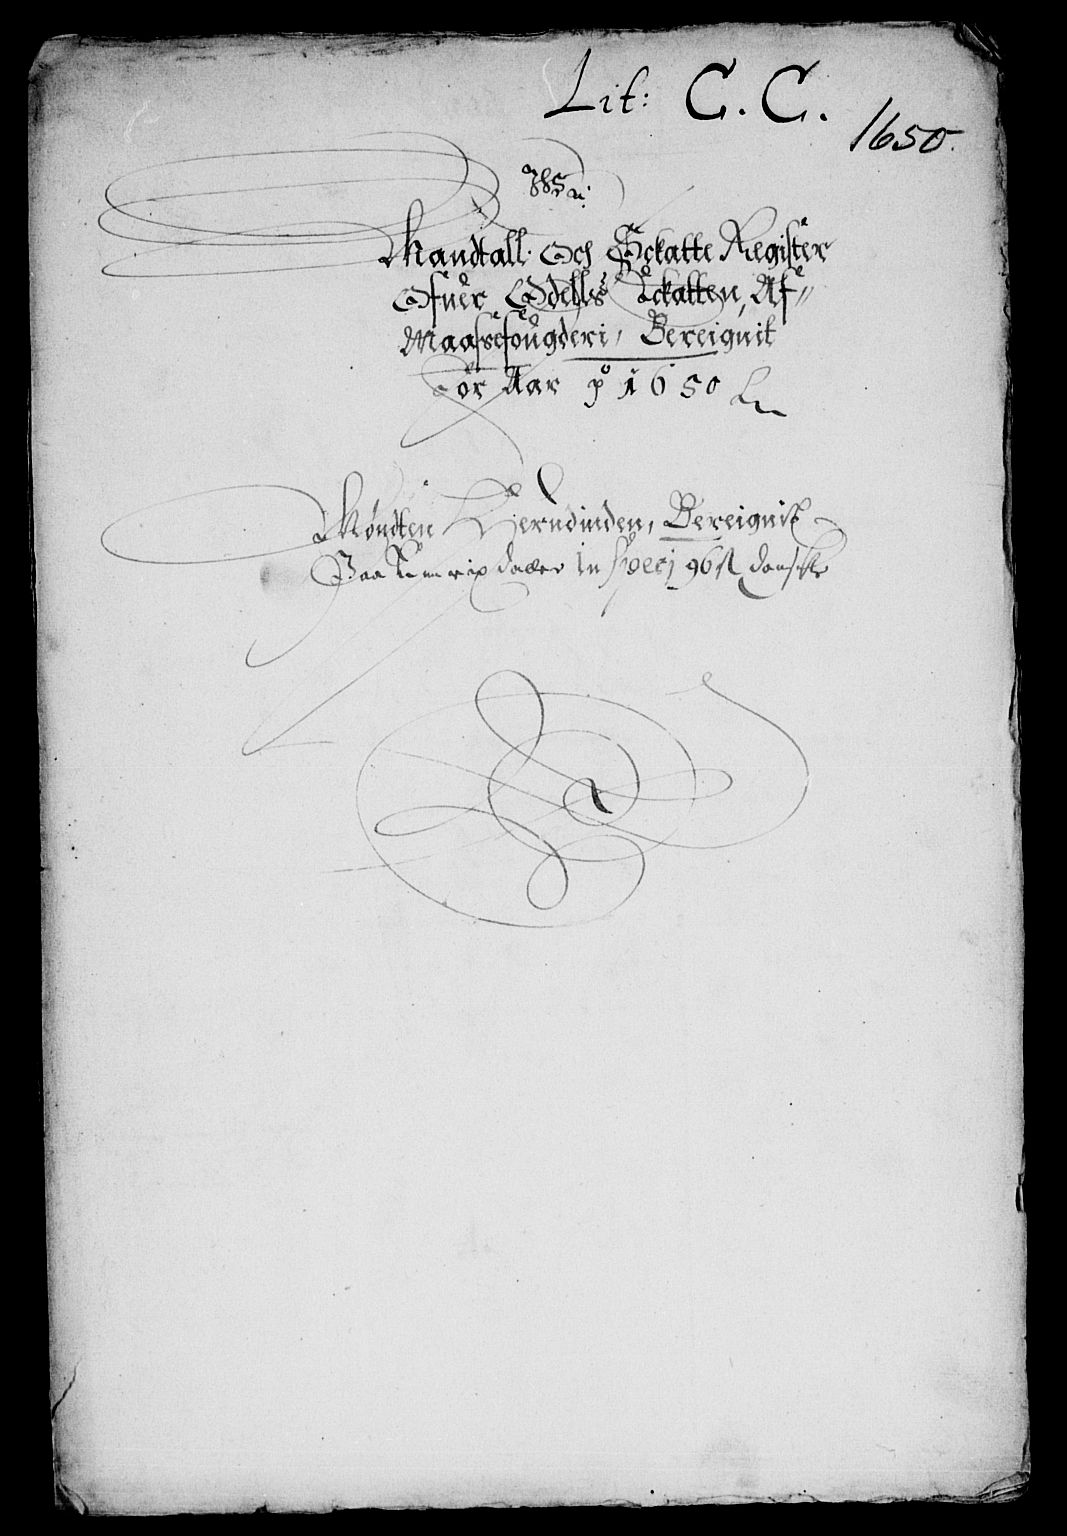 Lit: C. C.
1650.
Mandtall. Och Schatte Register
Ofuer Odells Schatten, Af
Maassefougderi, Bereignit
for Aar po 1650
Møndten Herudinden, Bereignit
Paa daler In Specj 96 ſl danske